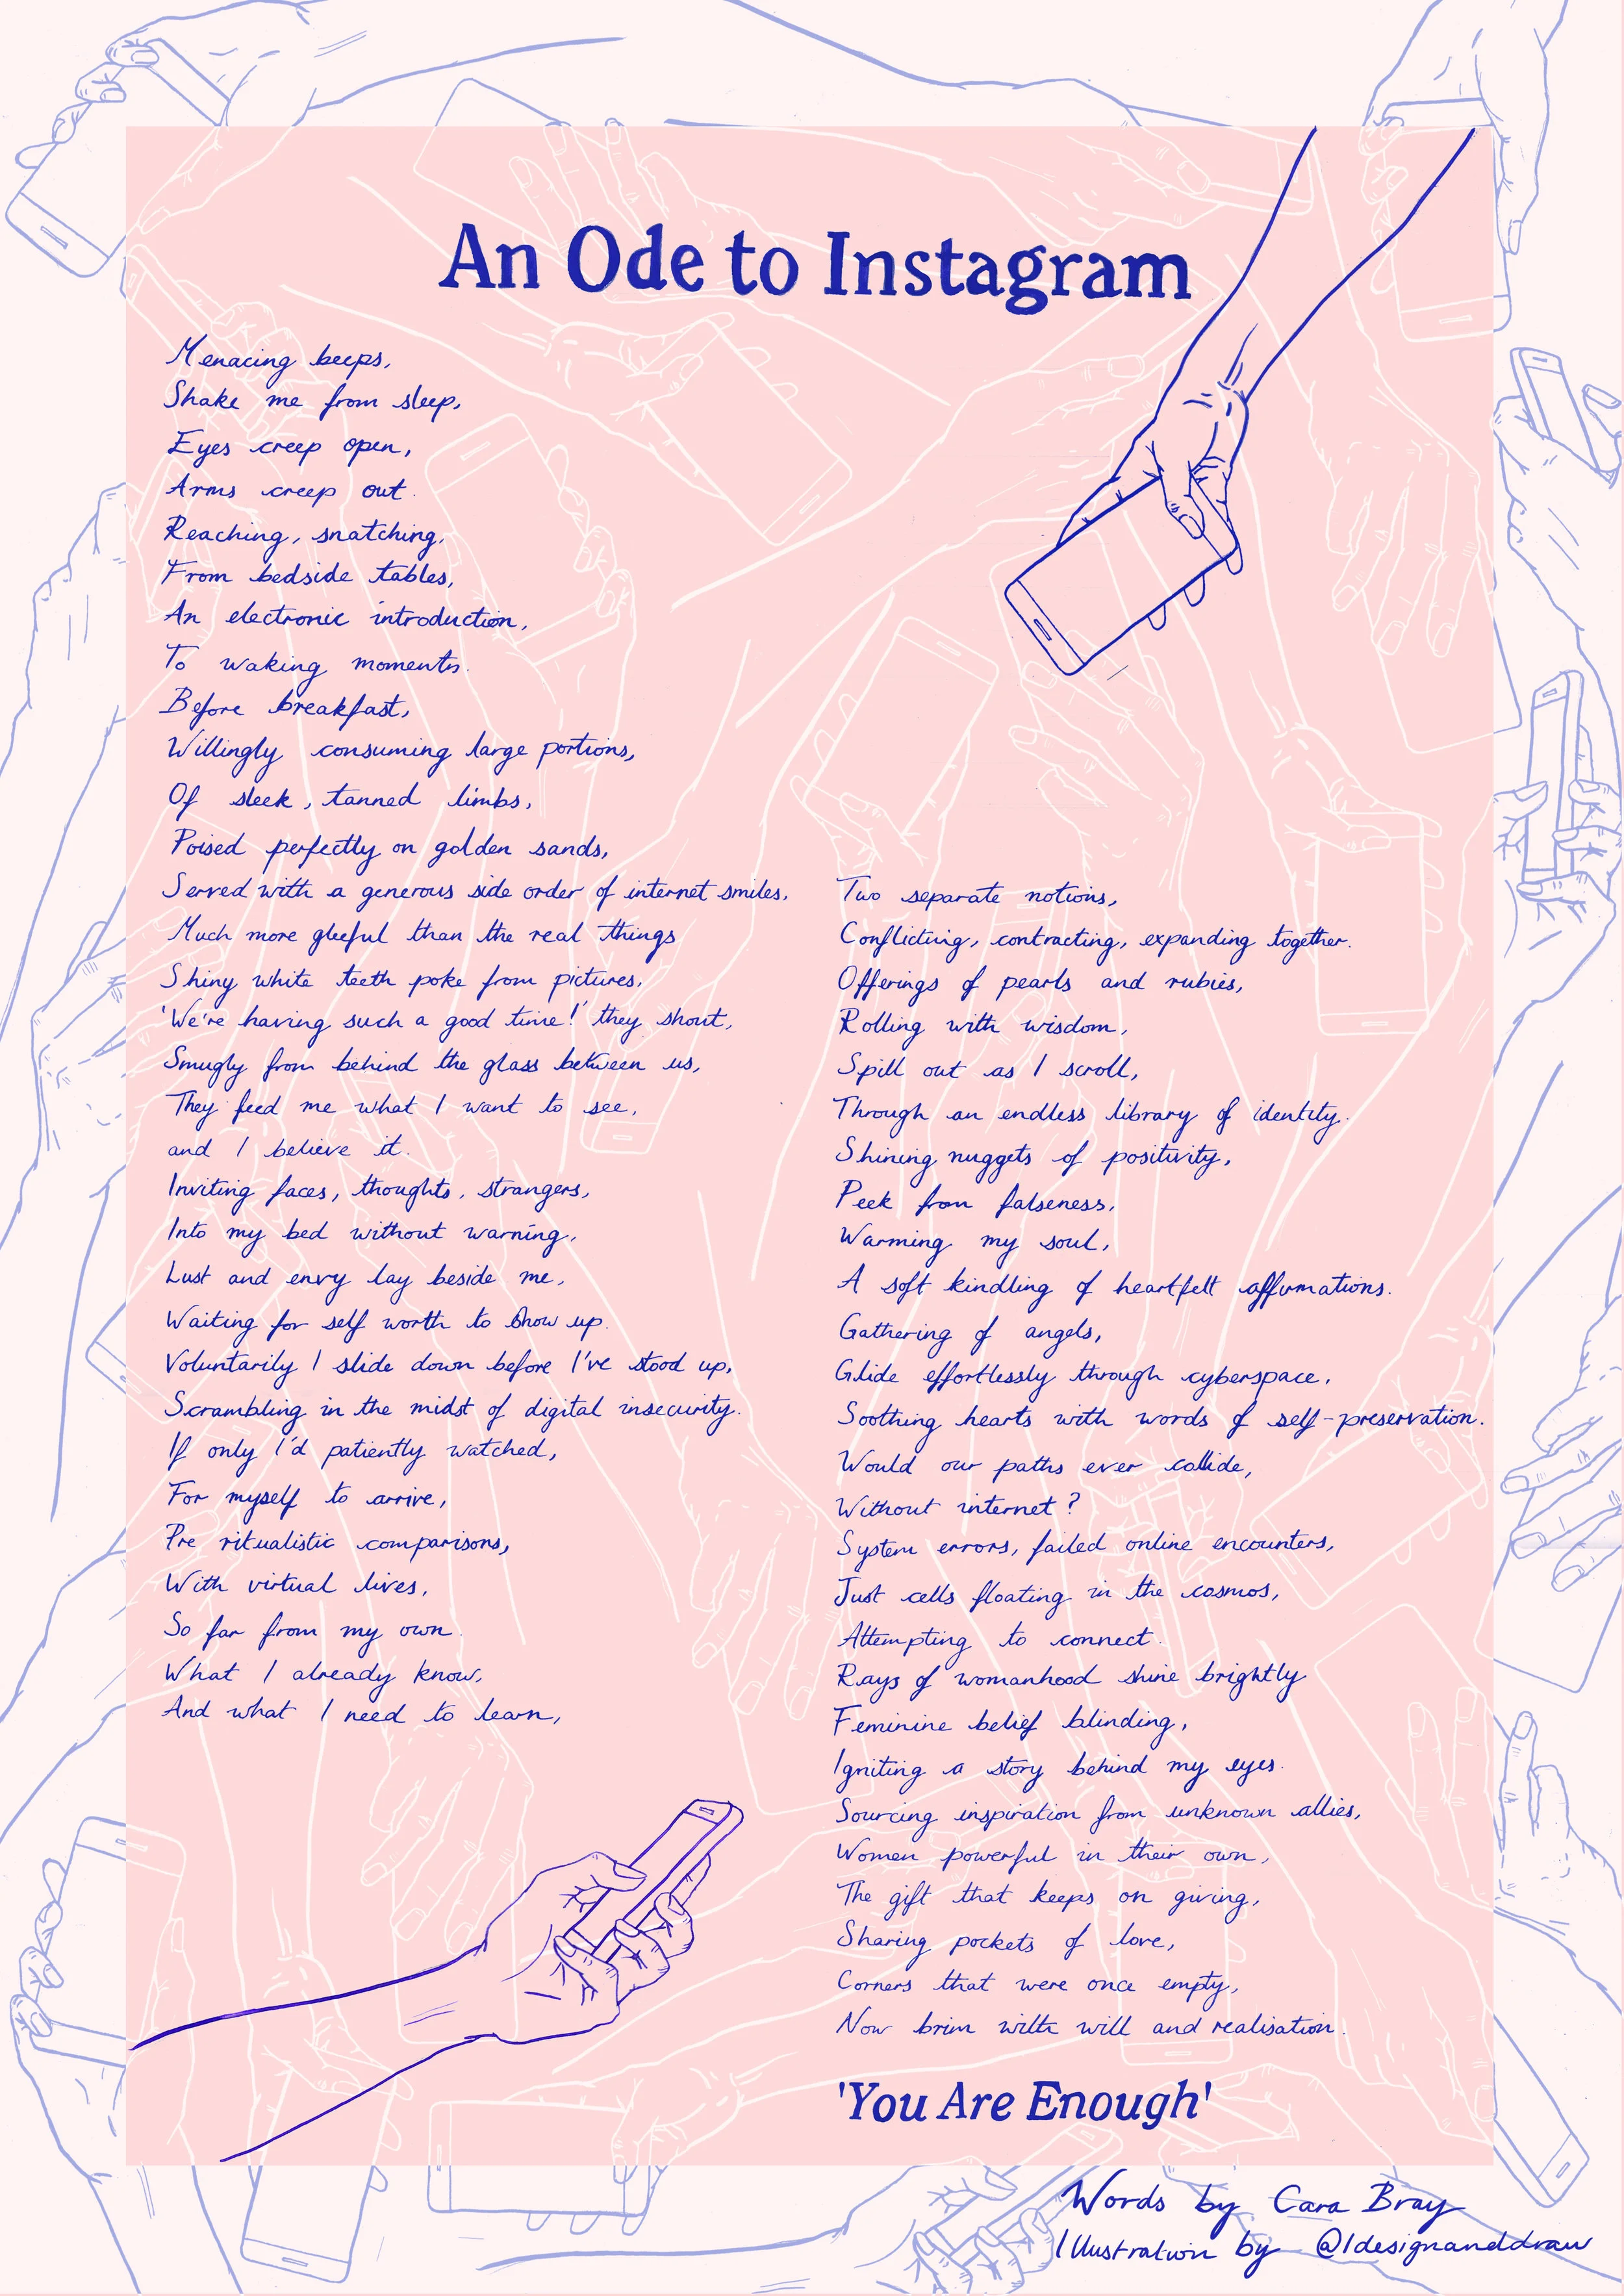 An Ode to Instagram
Menacing beeps,
Shake me from sleep,
Eyes creep open,
Arms creep out.
Reaching, snatching,
From bedside tables,
An electronic introduction,
To waking moments.
Before breakfast,
Willingly consuming large portions,
Of sleek, tanned limbs,
Poised perfectly on golden sands,
Served with a generous side order of internet smiles,
Much more gleeful than the real things
Shiny white teeth poke from pictures,
'We're having such a good time!' they shout,
Smugly from behind the glass between us,
They feed me what I want to see,
and I believe it.
Inviting faces, thoughts, strangers,
Into my bed without warning,
Lust and envy lay beside me,
Waiting for self worth to show up.
Voluntarily I slide down before I've stood up,
Scrambling in the midst of digital insecurity.
If only I'd patiently watched,
For myself to arrive,
Pre ritualistic comparisons,
With virtual lives,
So far from my own.
What I already know,
And what I need to learn,
Two separate notions,
Conflicting, contracting, expanding together.
Offerings of pearls and rubies,
Rolling with wisdom,
Spill out as I scroll,
Through an endless library of identity.
Shining nuggets of positivity,
Peek from falseness,
Warming my soul,
A soft kindling of heartfelt affirmations.
Gathering of angels,
Glide effortlessly through cyberspace,
Soothing hearts with words of self-preservation.
Would our paths ever collide,
Without internet?
System errors, failed online encounters,
Just cells floating in the cosmos,
Attempting to connect.
Rays of womanhood shine brightly
Feminine belief blinding,
Igniting a story behind my eyes.
Sourcing inspiration from unknown allies,
Women powerful in their own,
The gift that keeps on giving,
Sharing pockets of love,
Corners that were once empty,
Now brim with will and realisation.
'You Are Enough'
Words by Cara Bray
Illustration by @Idesignanddraw